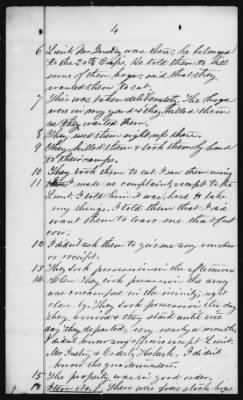 4
6 Lieut. Mr. Lindsey was there; he belonged
to the 20th Corps. He told them to kill
some of them hogs, and that they
wanted them to eat.
7 This was taken deliberately. The hogs
were in my yard & they killed them
as they wanted them.
8 They used them right up there.
9 They killed them & took them by hand
to their camps.
10 They took them to eat. I saw them using
11 I made no complaint, except to the
Lieut. I told him it was hard to take
my things. I told them that I did
want them to leave me that last
cow.
12 I didn't ask them to give me any voucher
or receipt.
13 They took possession in the afternoon
14 When they took possession the army
was encamped in the vicinity, right
close by. They took possession the day
they arrived & they staid until the
day they departed, very nearly a month.
I didn't know any officers except Lieut.
Mr. & Orderly. I didn't
know the quartermaster.
15 The property was in good order.
Item No. There were five stock hogs